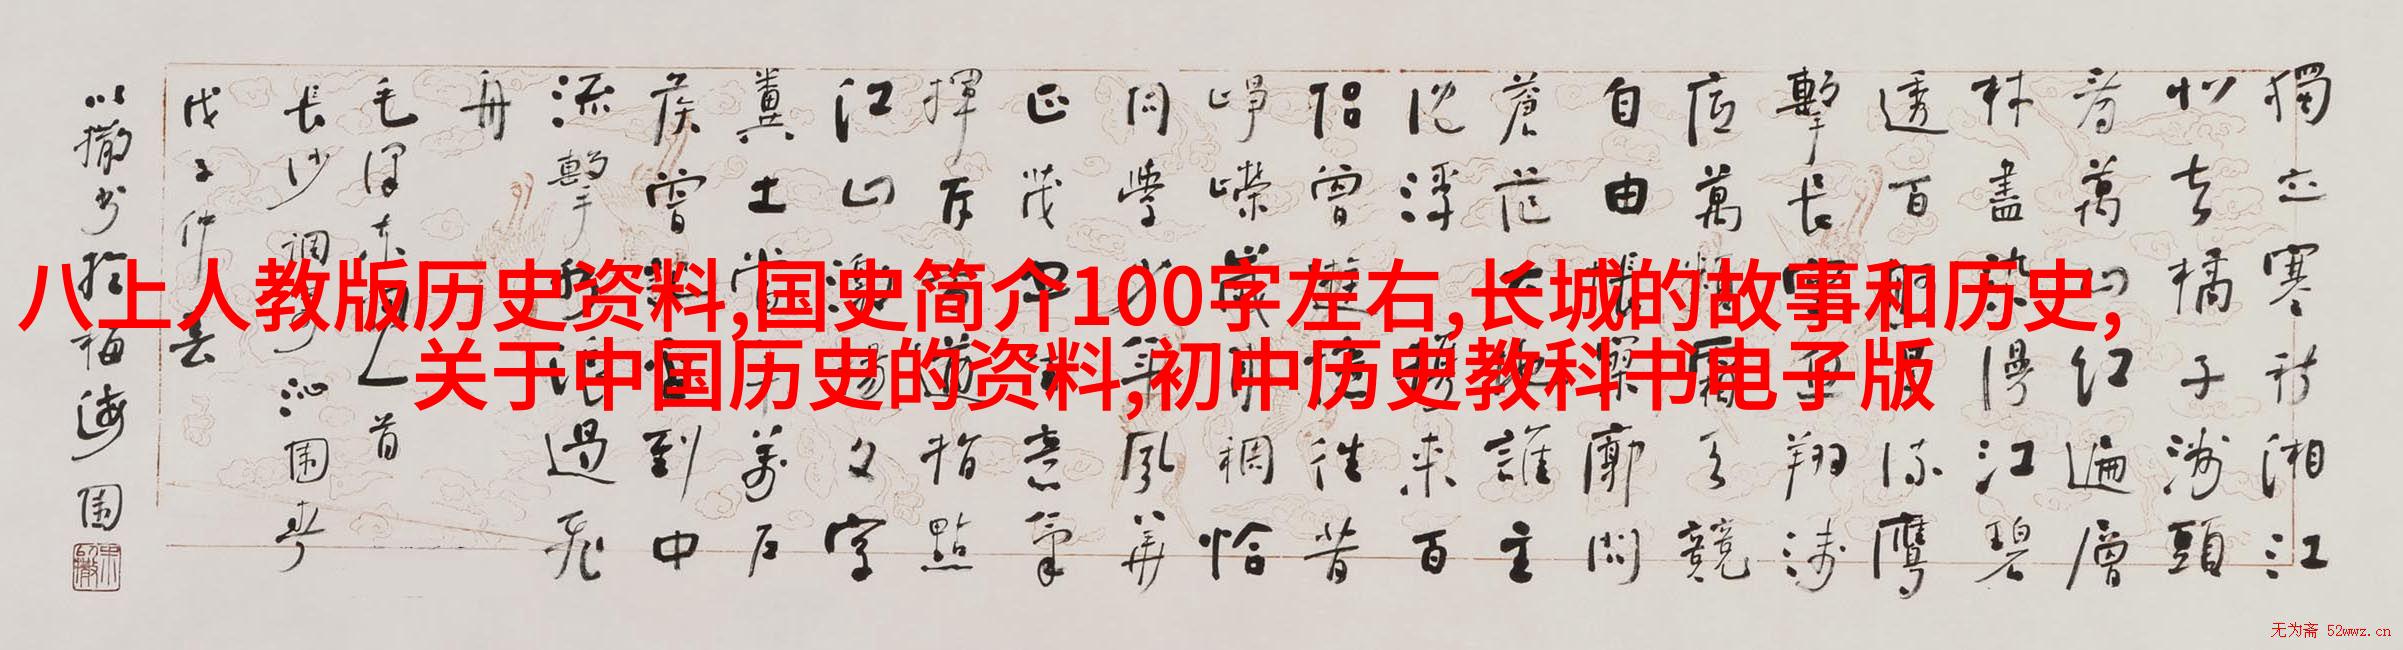 八上人教版历史资料,国史简介100字左右,长城的故事和历史,
关于中国历史的资料,初中历史教科书电子版
獨立寒秋湘江
北去橘子洲頭
看萬山红遍層
林盡染漫江碧
透百舸爭流鷹
擊長空魚翔淺
底萬類霜天競
自由悵寥廓問
蒼茫大地誰主
沈浮携來百
侣曾遊憶往昔
崢嶸歲月稠恰
同學少年風華
正茂書生意氣
揮斥方遒指點
江山激揚文字
糞土當年萬户
侯曾記否到中
流擊水浪遏飛
舟
毛澤东词一首
長沙調寄沁園春
戊子仲
以撒书於梅海園
无为斋 52wwz.cn